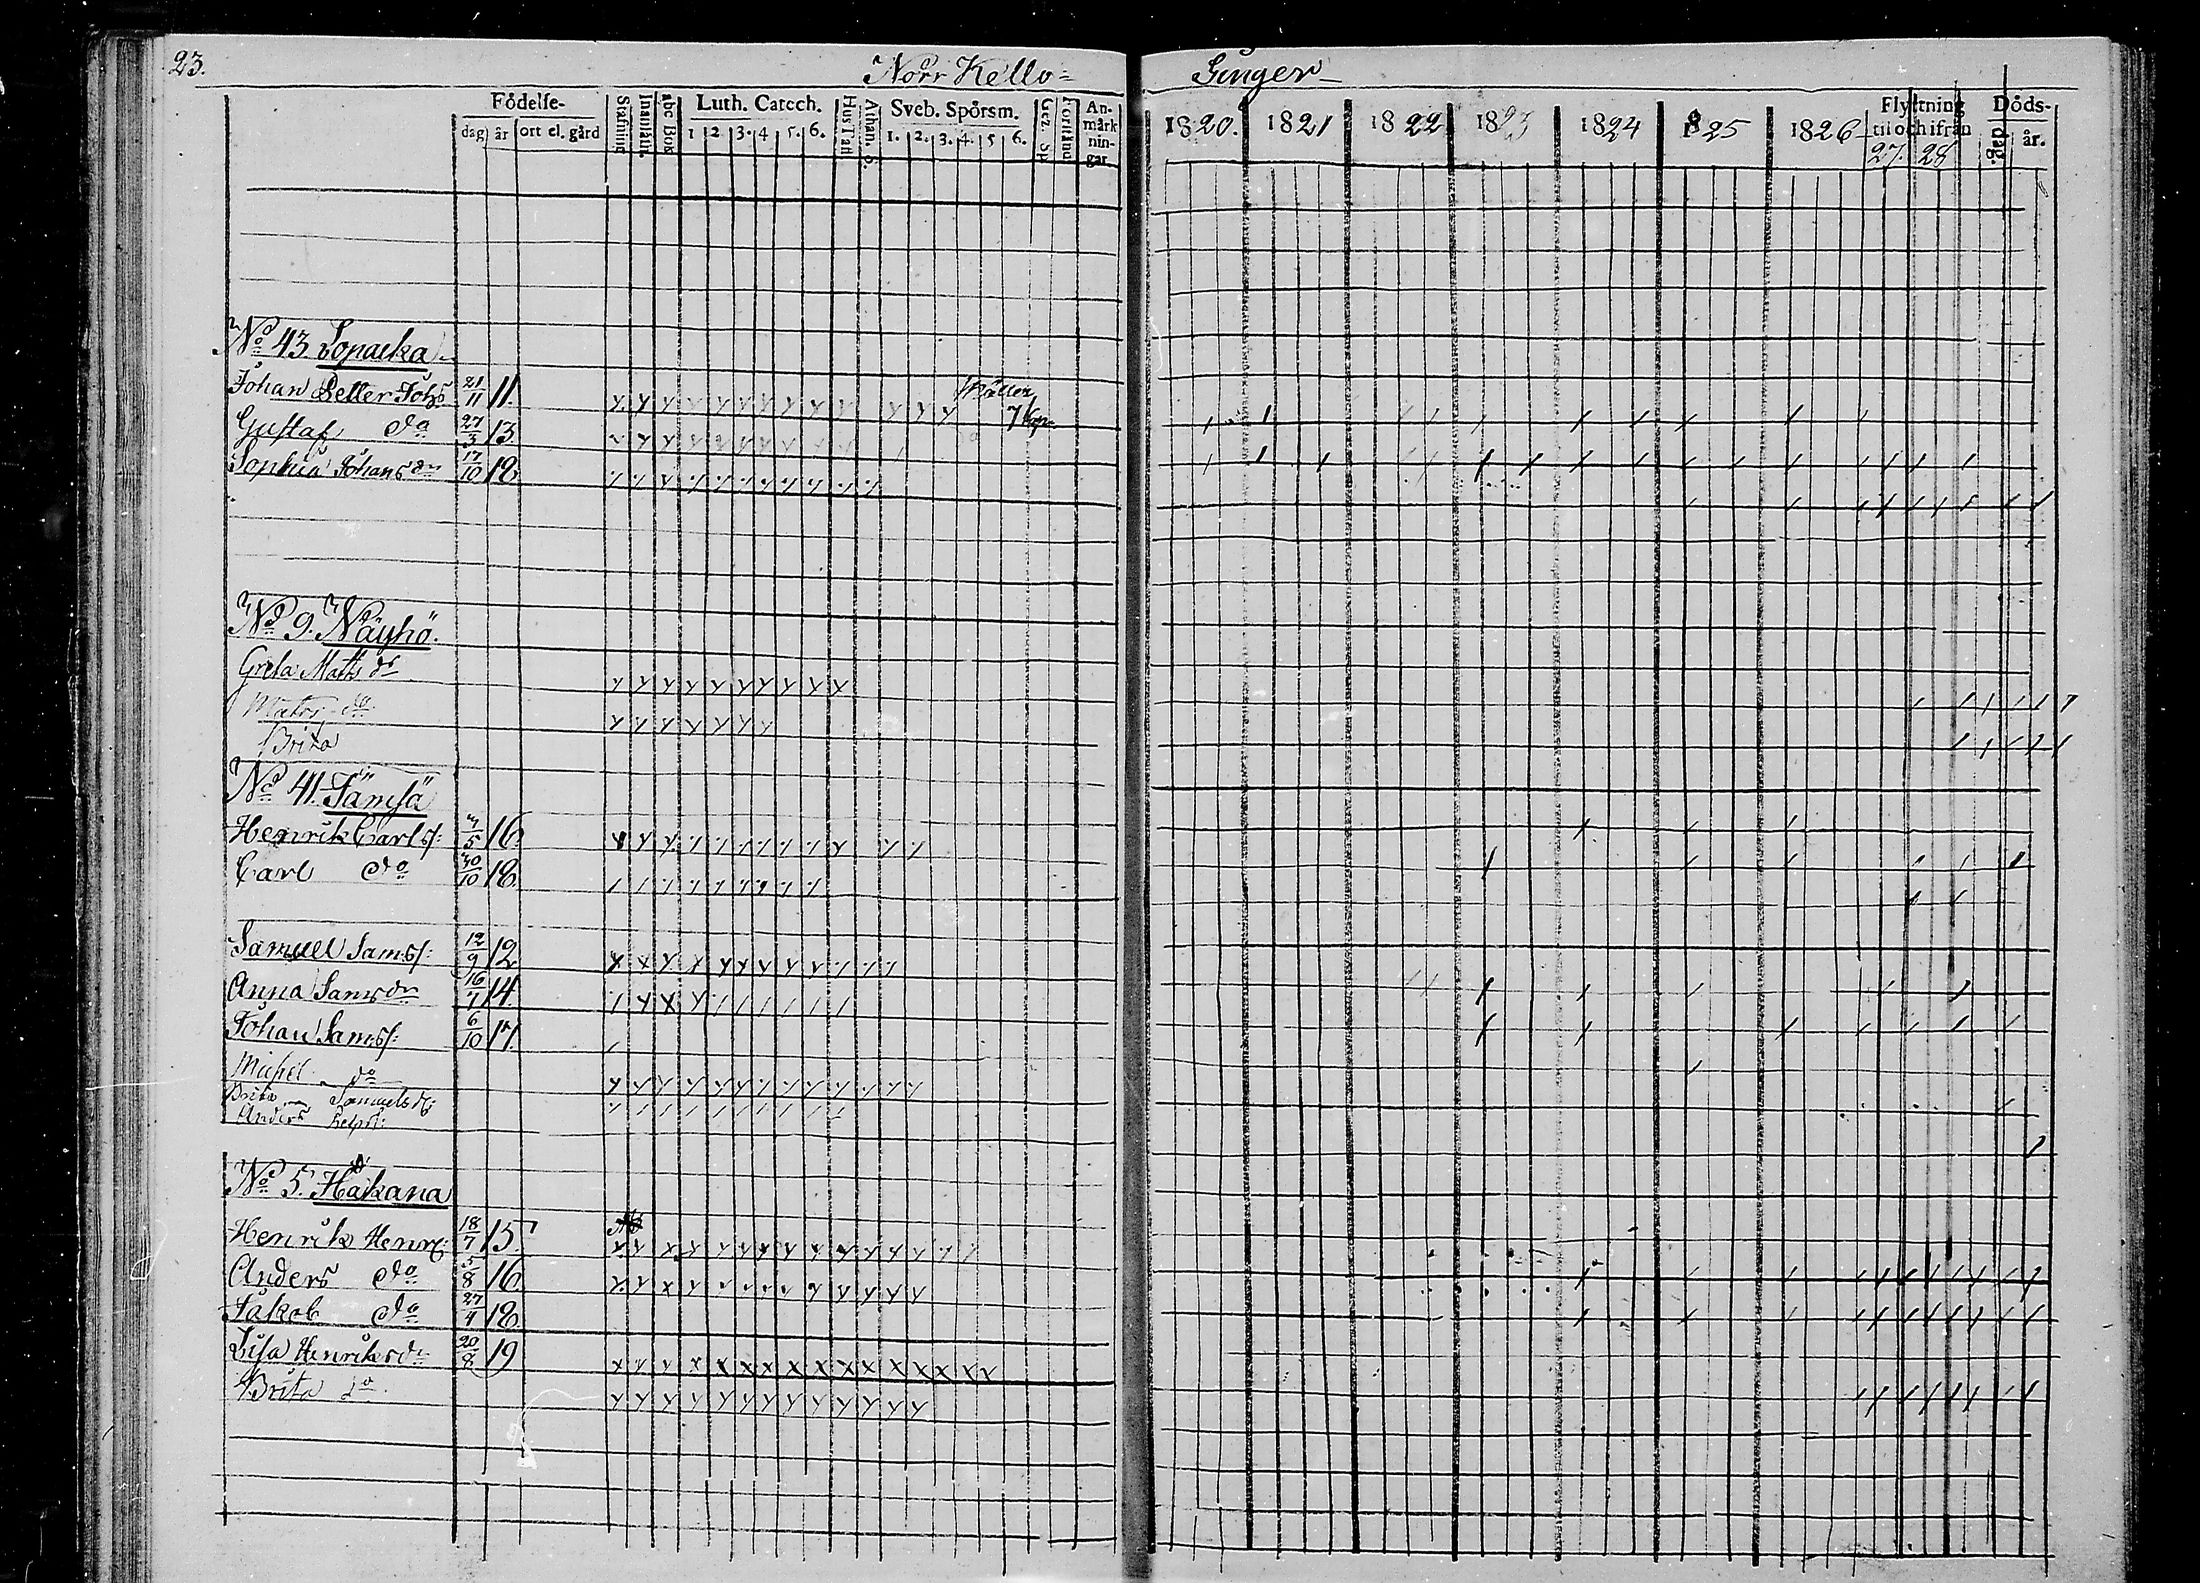 23.
Norr Kello=
Gunger
Födelse-
dag år ort el. gård
Stafning
Innanläsn.
abc Bok
Luth. Catech.
1 2. 3. 4 5. 6.
Hus Tafl
Athan. S.
Sveb. Spörsm.
1. 2. 3. 4. 5 6.
Gez. Sp.
Förstånd
An-
märk
nin-
gar.
1820. 1821 1822 1823 1824 1825 1826
Flyttning
til och ifrån
27. 28
Döds-
dag. år.
No 43 Sopacka
Johan Petter Johs 21/11 11.
7 Kap
Gustaf do 27/3 13.
Sophia Johans dr 17/10 18.
No 9. Näyhö.
Greta Matts dr
do
Brita
No 41. Jämsä
Henrik Carls: 3/5 16.
Carl do 30/10 18.
Samuel Sams: 12/9 12
Anna Sams dr 16/7 14.
Johan Sams: 6/10 17.
Michel do
Brita Samuels dr:
Anders
No 5. Håkana
Henrik Henr: 18/7 15.
Anders do 5/8 16.
Jakob do 27/4 18.
Lisa Henriks dr 20/8 19
Brita do.